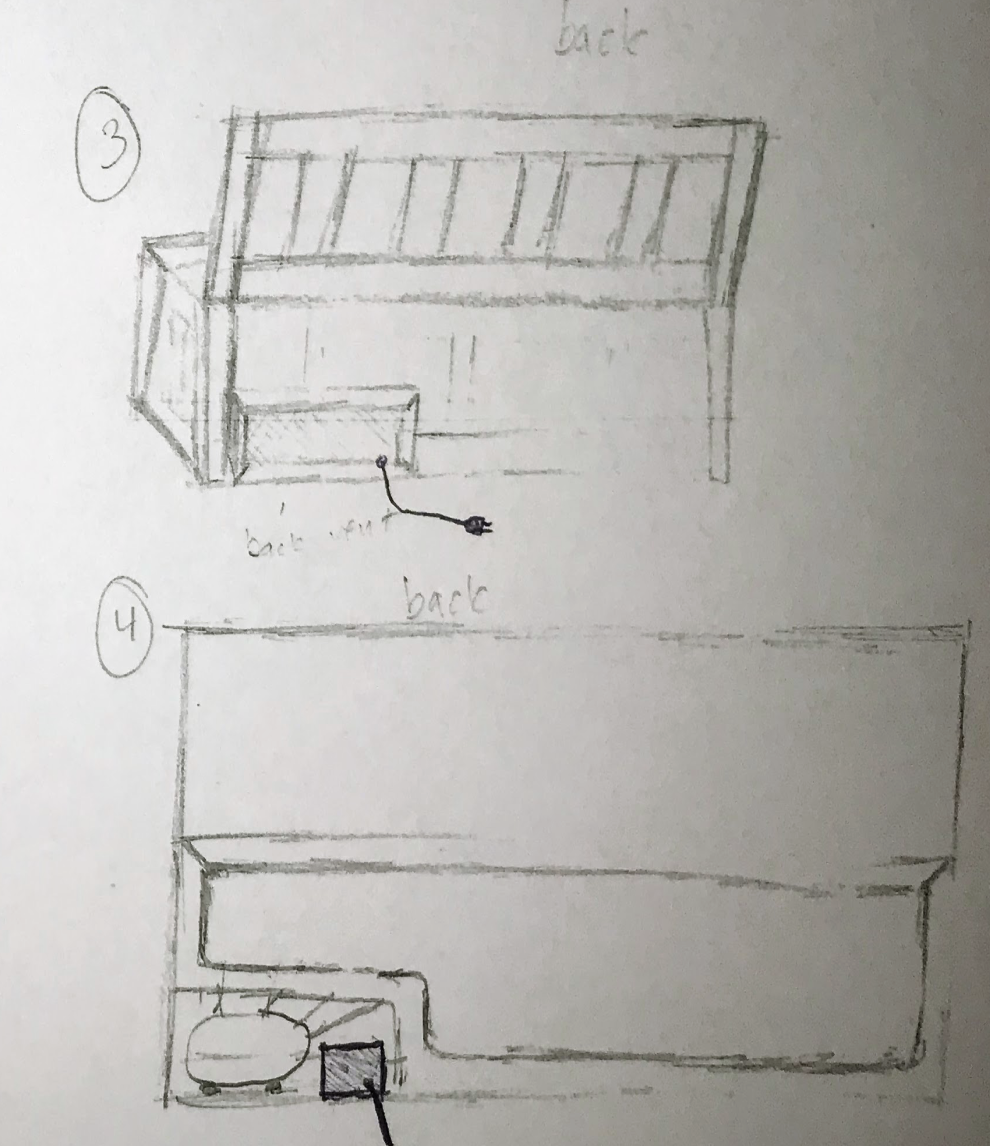 back
3
back vent
4
back